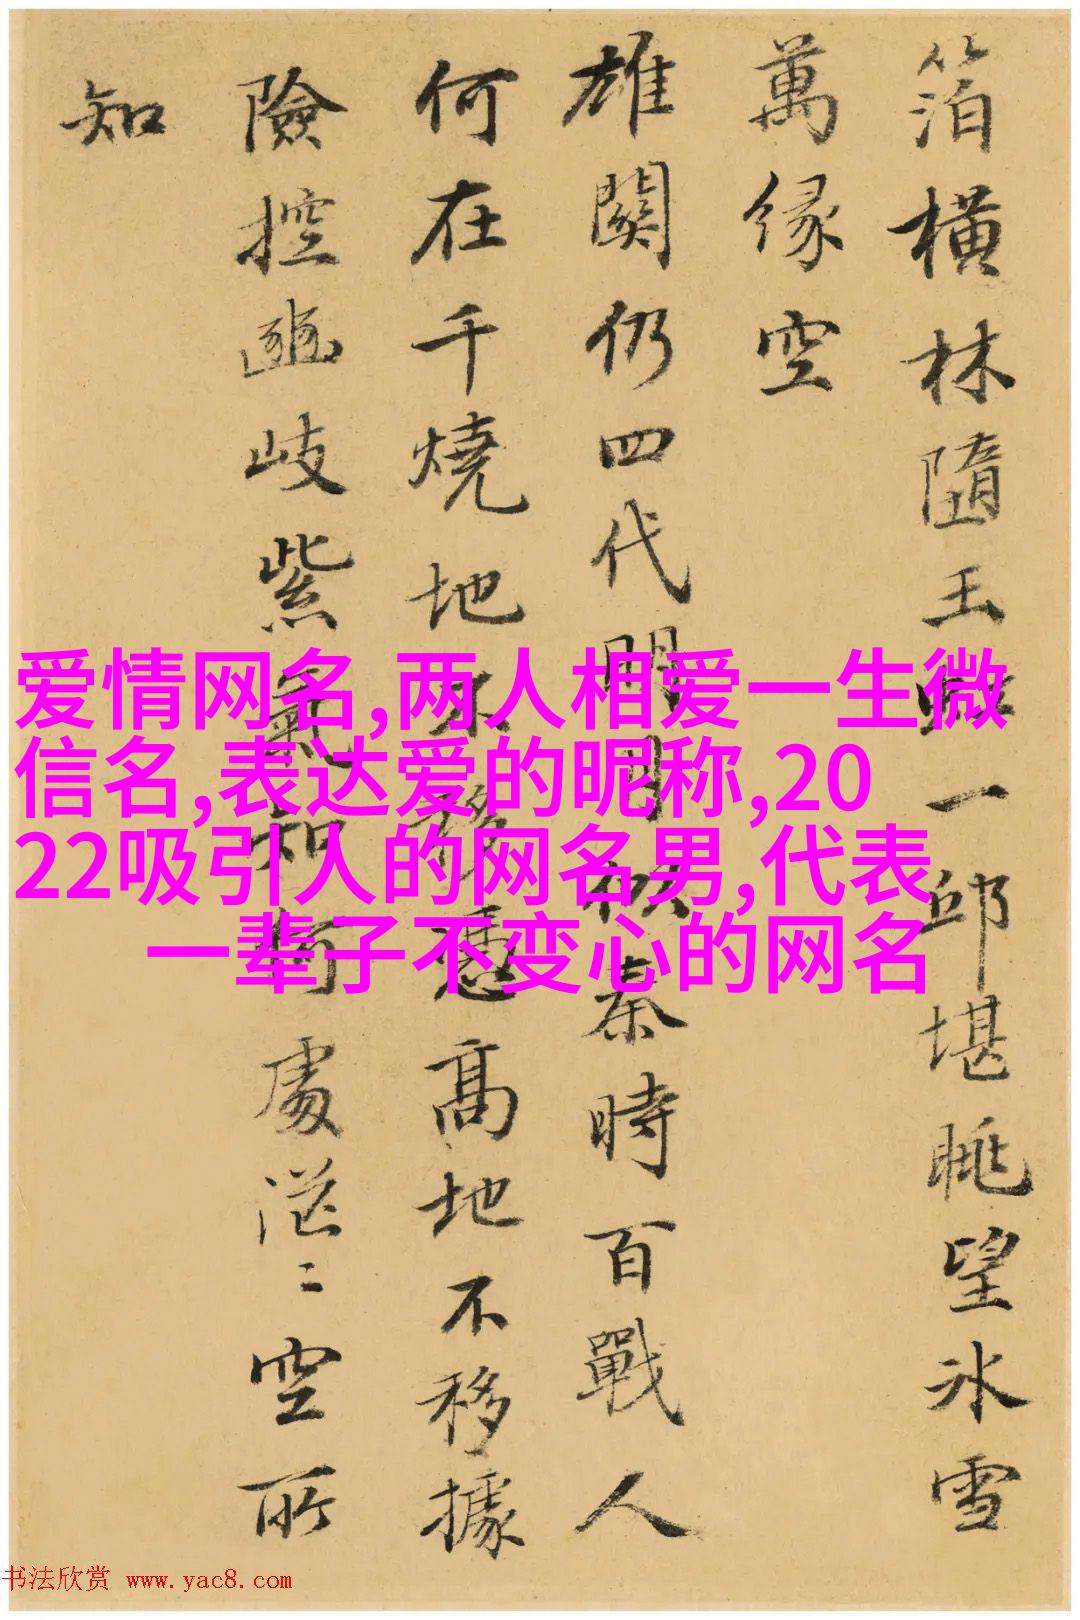 箔横林隨玉𡋯一邱堪眺望冰雪
萬緣空
雄関仍四代明月似秦時百戰人
何在千燒地不移憑高地不移據
險控豳岐紫氣知何處茫〻空所
知
爱情网名,两人相爱一生微
信名,表达爱的昵称,20
22吸引人的网名男,代表
一辈子不变心的网名
书法欣赏 www.yac8.com